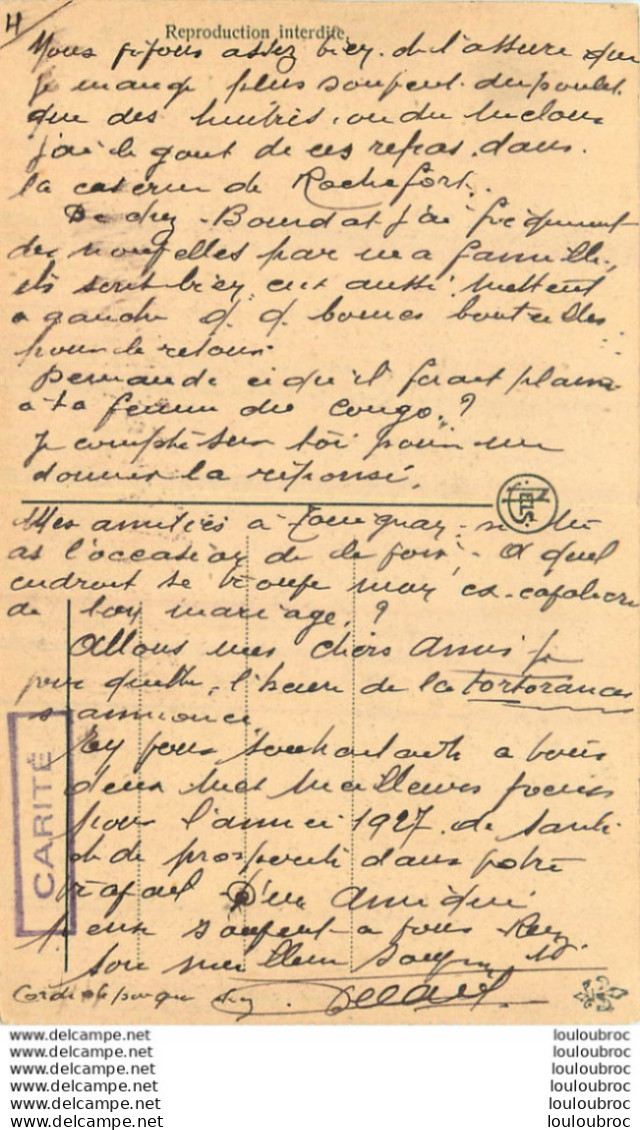 4
Reproduction interdite.
Nous vivons assez bien. Je t'assure que
je mange plus souvent du poulet
que des huitres. ou du melon
j'ai le gout de ces repas dans
la caserne de Rochefort.
De chez Bourdat j'ai fréquement
des nouvelles par ma famille,
ils sont bien eux aussi. Mettent
a gauche d. d. bonnes bouteilles
pour le retour
Demande ce qu'il ferait plaisir
à ta femme du Congo.?
Je compte sur toi pour me
donner la réponse.
Mes amitiés à si tu
as l'occasion de le voir. A quel
endroit se trouve mon ex-cavalière
de ton mariage.?
Allons mes chers Amis je
vous quitte, l'heure de la
s'annonce
En vous souhaitant a tous
deux mes meilleurs voeux
pour l'année 1927. de santé
et de prospérité dans votre
travail. D'un Ami qui
pense souvent a vous. Reçois
son meilleur souvenir
CARITÉ
www.delcampe.net louloubroc
www.delcampe.net louloubroc
www.delcampe.net louloubroc
www.delcampe.net louloubroc
www.delcampe.net louloubroc
www.delcampe.net louloubroc